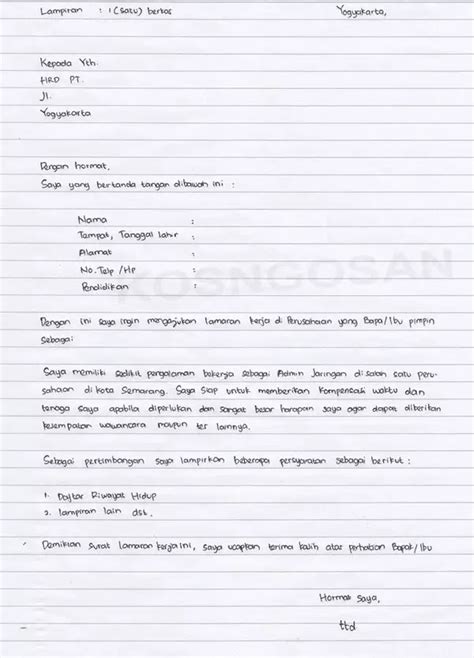 Lampiran : 1 (satu) berkas Yogyakarta,
Kepada Yth.
HRD PT.
Jl.
Yogyakarta
Dengan hormat,
Saya yang bertanda tangan dibawah ini :
Nama :
Tempat, Tanggal lahir :
Alamat :
No. Telp / Hp :
Pendidikan :
KOSNGOSAN
Dengan ini saya ingin mengajukan lamaran kerja di Perusahaan yang Bapa/Ibu pimpin
sebagai
Saya memiliki sedikit pengalaman bekerja sebagai Admin Jaringan di salah satu peru-
sahaan di kota Semarang. Saya siap untuk memberikan kompensasi waktu dan
tenaga saya apabila diperlukan dan sangat besar harapan saya agar dapat diberikan
kesempatan wawancara maupun tes lainnya.
Sebagai pertimbangan saya lampirkan beberapa persyaratan sebagai berikut :
1. Daftar Riwayat Hidup
2. lampiran lain dst.
Demikian surat lamaran kerja ini, saya ucapkan terima kasih atas perhatian Bapak/Ibu
Hormat Saya,
ttd